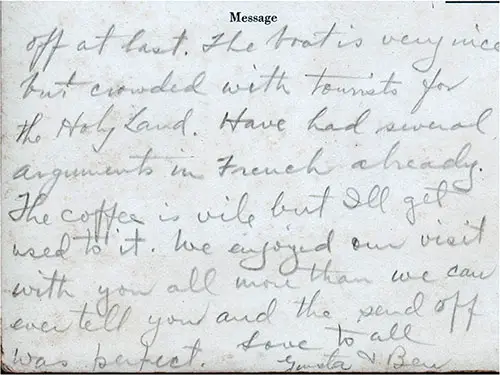 Message
off at last. The boat is very nice
but crowded with tourists for
the Holy Land. Have had several
arguments in French already.
The coffee is vile but I'll get
used to it. We enjoyed our visit
with you all more than we can
ever tell you and the send off
was perfect. Love to all
& Ben